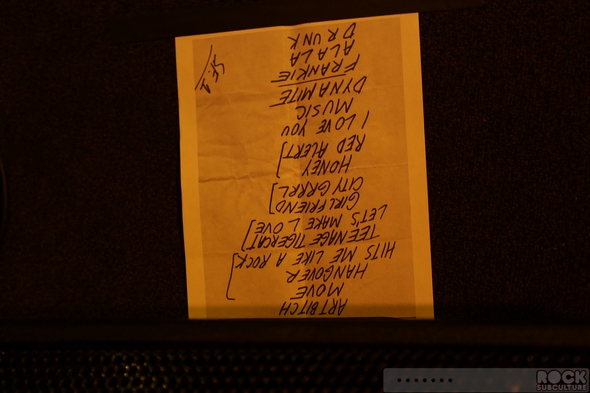 S.F. 1
ART BITCH
MOVE
HANGOVER
HITS ME LIKE A ROCK
TEENAGE TIGERCAT
LET'S MAKE LOVE
GIRLFRIEND
CITY GRRRL
HONEY
RED ALERT
I LOVE YOU
MUSIC
DYNAMITE
FRANKIE
ALALA
DRUNK
ROCK
SUBCULTURE